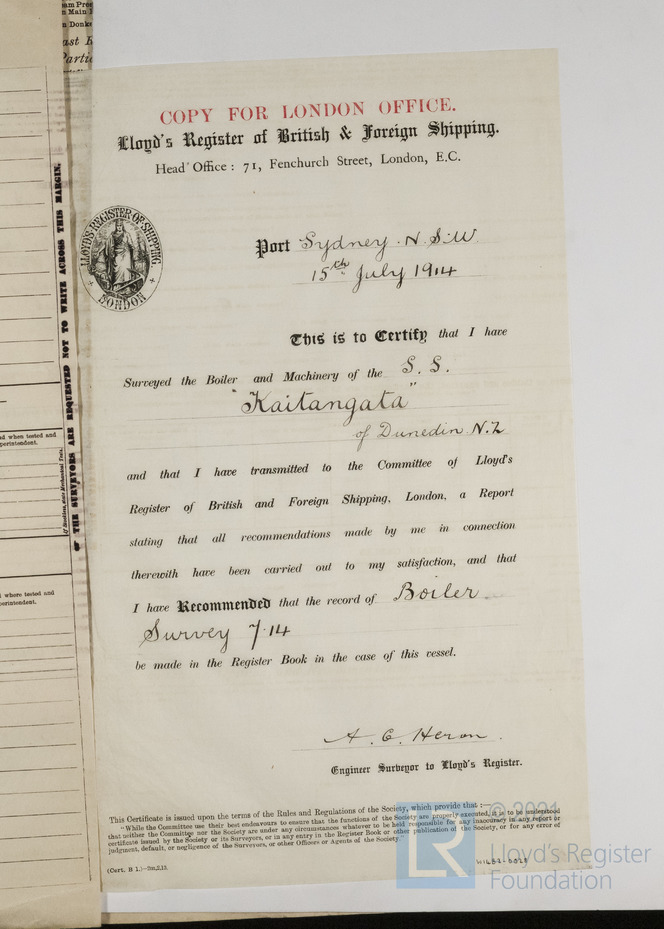 COPY FOR LONDON OFFICE.
Lloyd's Register of British & Foreign Shipping.
Head Office: 71, Fenchurch Street, London, E.C.
LLOYD'S REGISTER OF SHIPPING
LONDON
Port Sydney. N.S.W
15th July 1914
This is to Certify that I have
Surveyed the Boiler and Machinery of the S. S.
"Kaitangata"
of Dunedin. N.Z
and that I have transmitted to the Committee of Lloyd's
Register of British and Foreign Shipping, London, a Report
stating that all recommendations made by me in connection
therewith have been carried out to my satisfaction, and that
I have Recommended that the record of Boiler
Survey 7.14
be made in the Register Book in the case of this vessel.
A. C. Heron.
Engineer Surveyor to Lloyd's Register.
This Certificate is issued upon the terms of the Rules and Regulations of the Society, which provide that :—
"While the Committee use their best endeavours to ensure that the functions of the Society are properly executed, it is to be understood
that neither the Committee nor the Society are under any circumstances whatever to be held responsible for any inaccuracy in any report or
certificate issued by the Society or its Surveyors, or in any entry in the Register Book or other publication of the Society, or for any error of
judgment, default, or negligence of the Surveyors, or other Officers or Agents of the Society."
(Cert. B 1.)—2m,2,13.
© 2021
LR
Lloyd's Register
Foundation
OF THE SURVEYORS ARE REQUESTED NOT TO WRITE ACROSS THIS MARGIN.